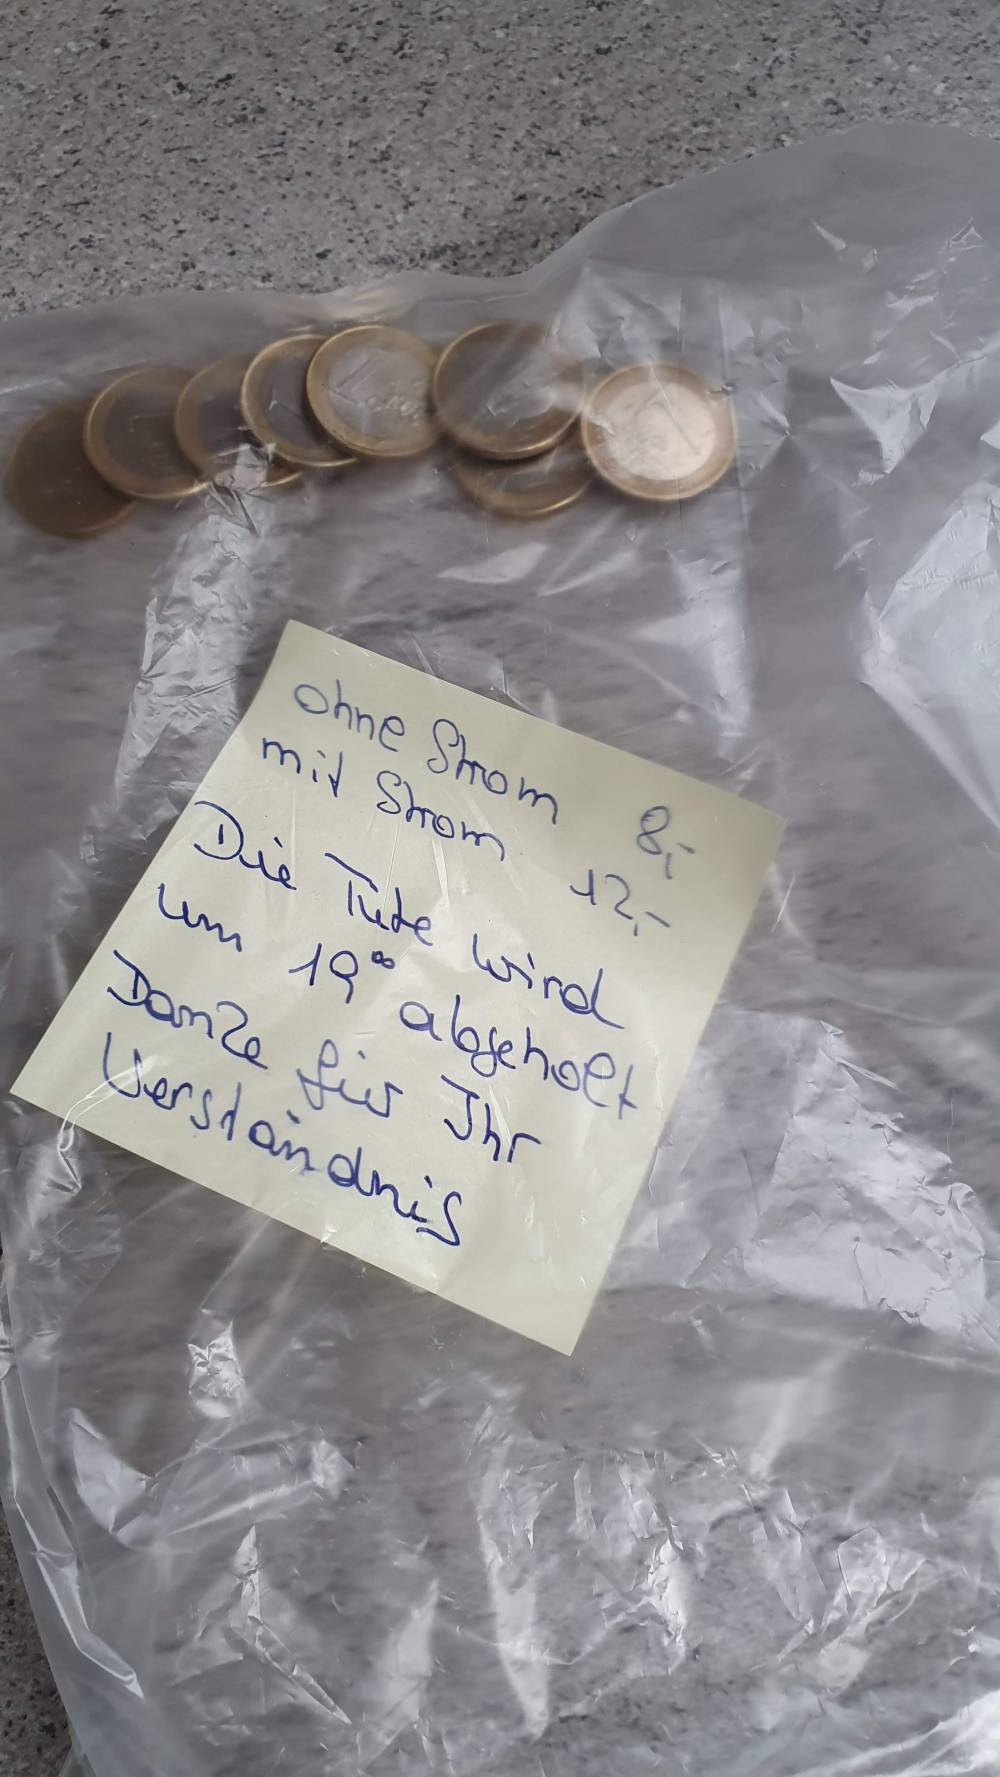 ohne Strom 8,-
mit Strom 12,-
Die Tüte wird
um 19°° abgeholt
Danke für Ihr
Verständnis